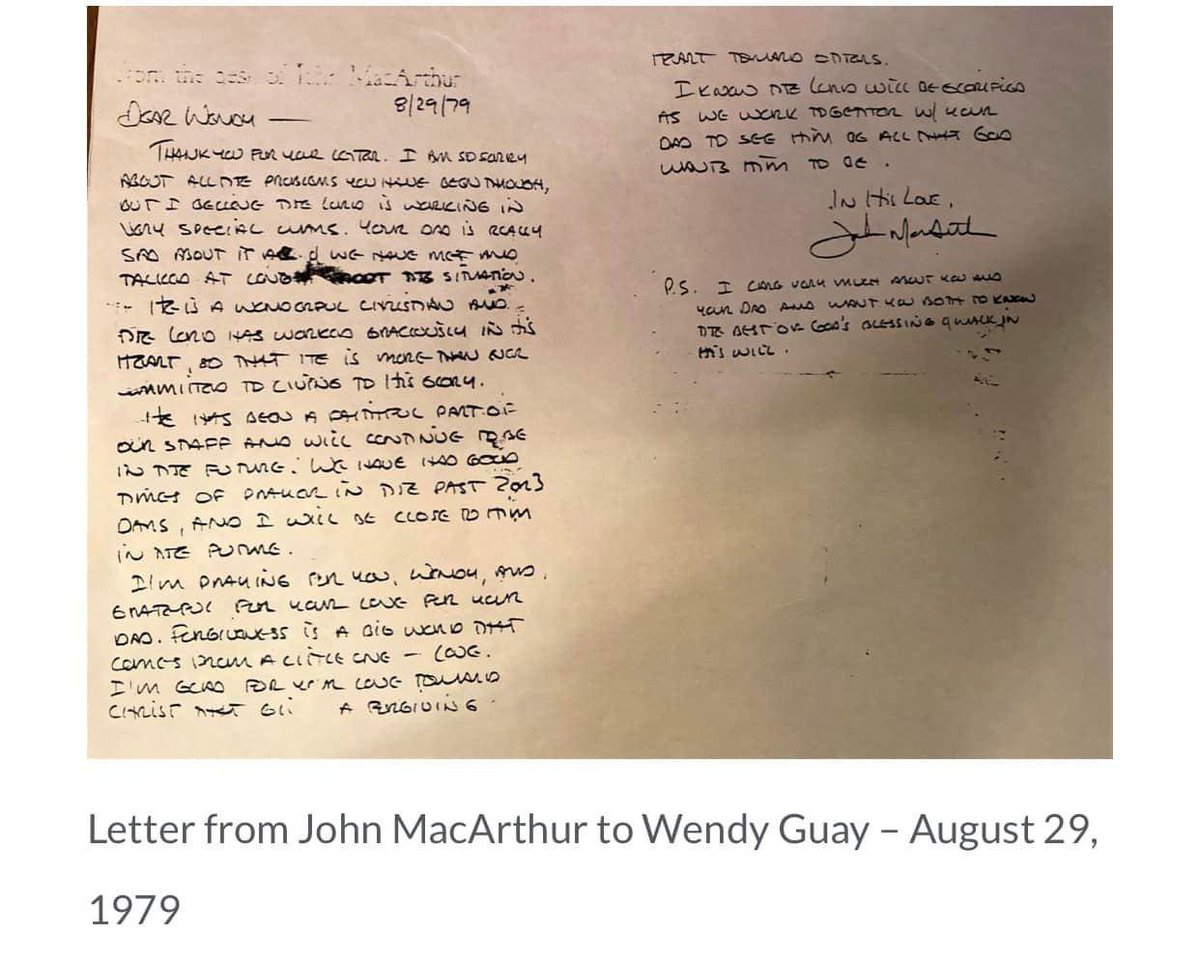 From the desk of John MacArthur
8/29/79
Dear Wendy —
Thank you for your letter. I am so sorry
about all the problems you have been through,
but I believe the Lord is working in
very special ways. Your dad is really
sad about it and we have met and
talked at long about the situation.
He is a wonderful Christian and
the Lord has worked graciously in his
heart, so that he is more than ever
committed to living to His glory.
He has been a faithful part of
our staff and will continue to be
in the future. We have had good
times of prayer in the past 2 or 3
days, and I will be close to him
in the future.
I'm praying for you, Wendy, and
grateful for your love for your
dad. Forgiveness is a big word that
comes from a little one – love.
I'm glad for your love toward
Christ that a forgiving
heart toward others.
I know the Lord will be glorified
as we work together w/ your
dad to see him be all that God
wants him to be.
In His Love,
John MacArthur
P.S. I care very much about you and
your dad and want you both to know
the best of God's blessing & walk in
His will.
Letter from John MacArthur to Wendy Guay – August 29,
1979